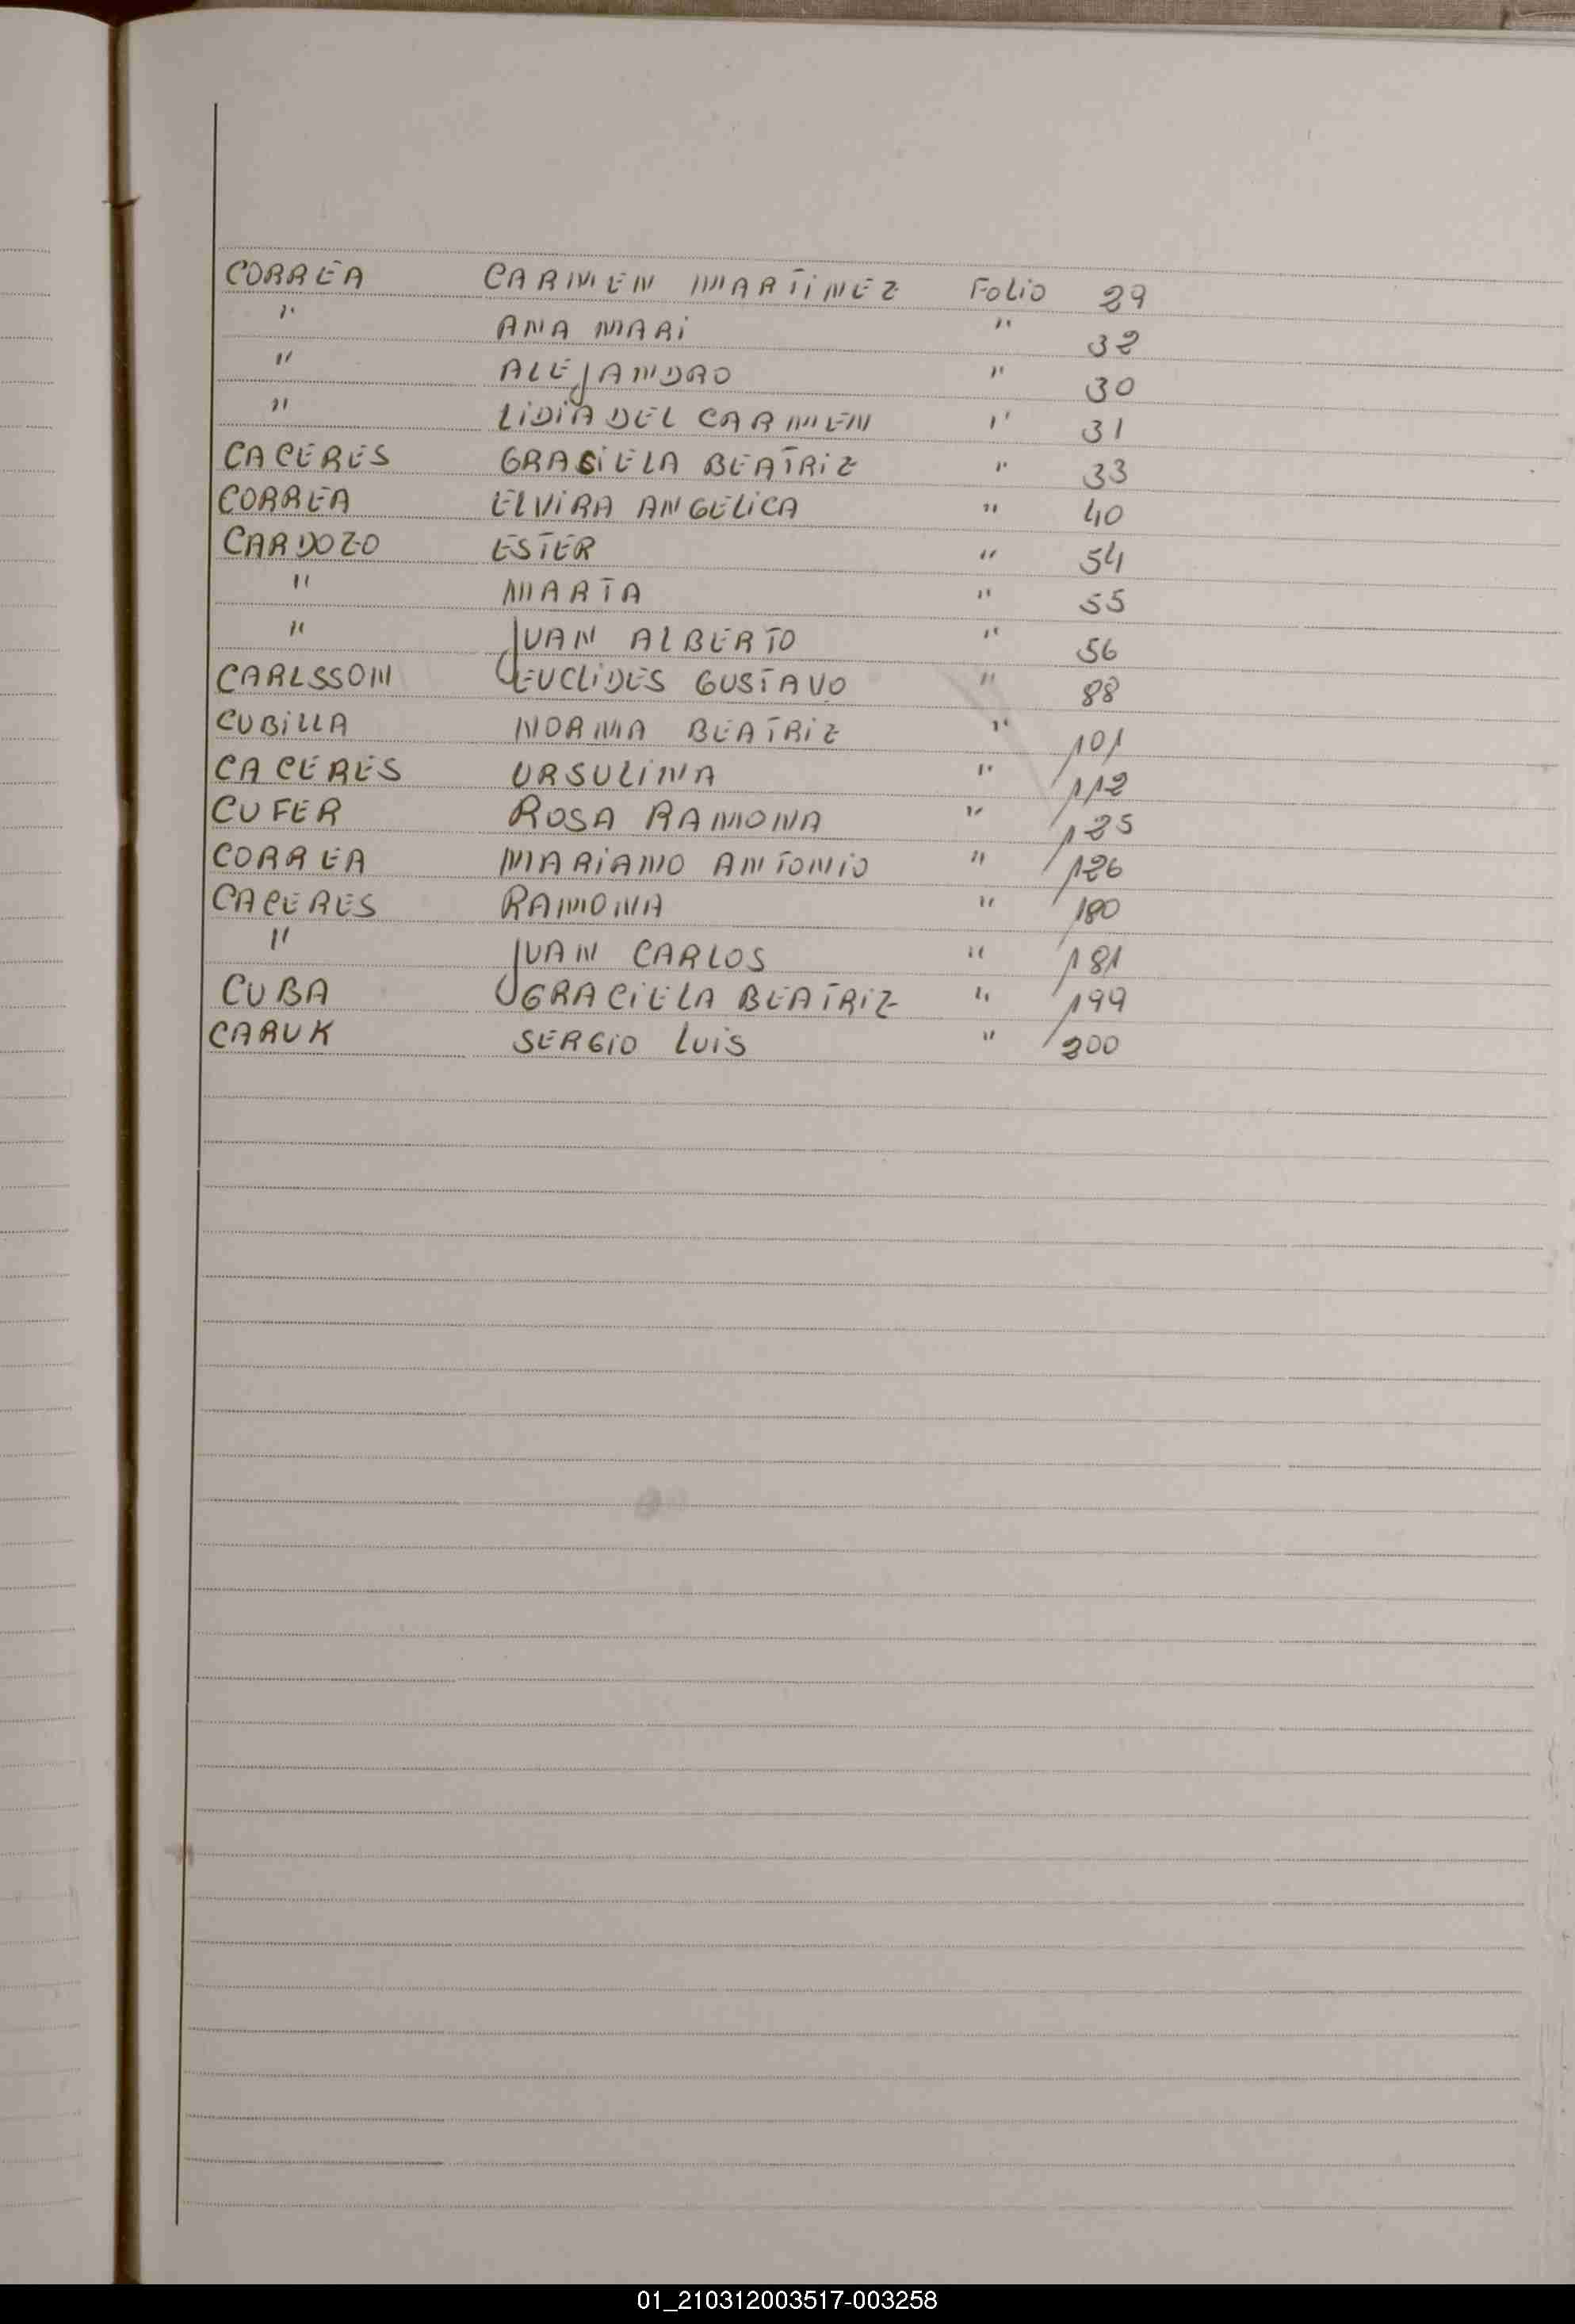 CORREA CARMEN MARTINEZ Folio 29
" ANA MARI " 32
" ALEJANDRO " 30
" LIDIA DEL CARMEN " 31
CACERES GRASIELA BEATRIZ " 33
CORREA ELVIRA ANGELICA " 40
CARDOZO ESTER " 54
" MARTA " 55
" JUAN ALBERTO " 56
CARLSSON EUCLIDES GUSTAVO " 88
CUBILLA NORMA BEATRIZ " 101
CACERES URSULINA " 112
CUFER ROSA RAMONA " 125
CORREA MARIANO ANTONIO " 126
CACERES RAMONA " 180
" JUAN CARLOS " 181
CUBA GRACIELA BEATRIZ " 199
CARUK SERGIO LUIS " 200
01_210312003517-003258